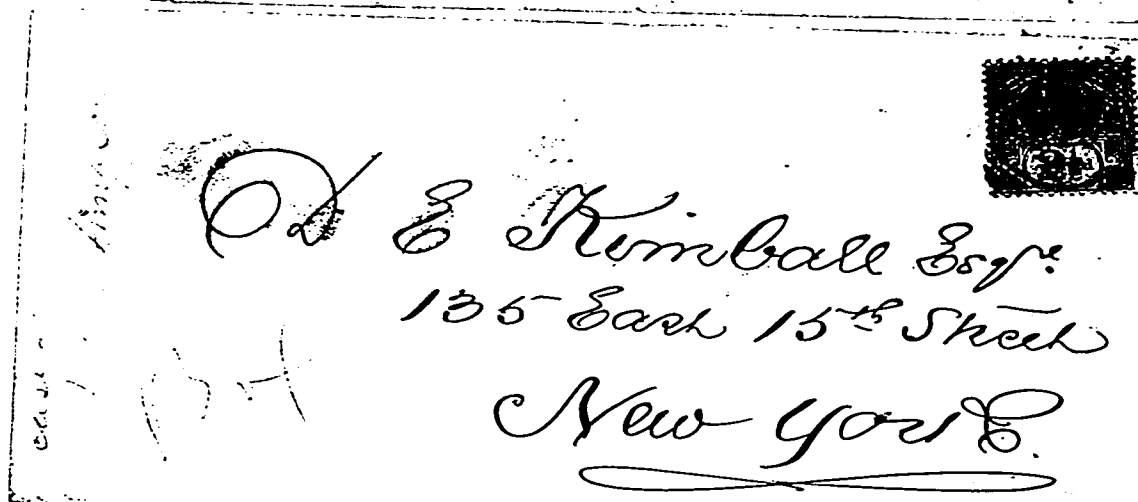 D E Kimball Esqre.
135 East 15th Street
New York.